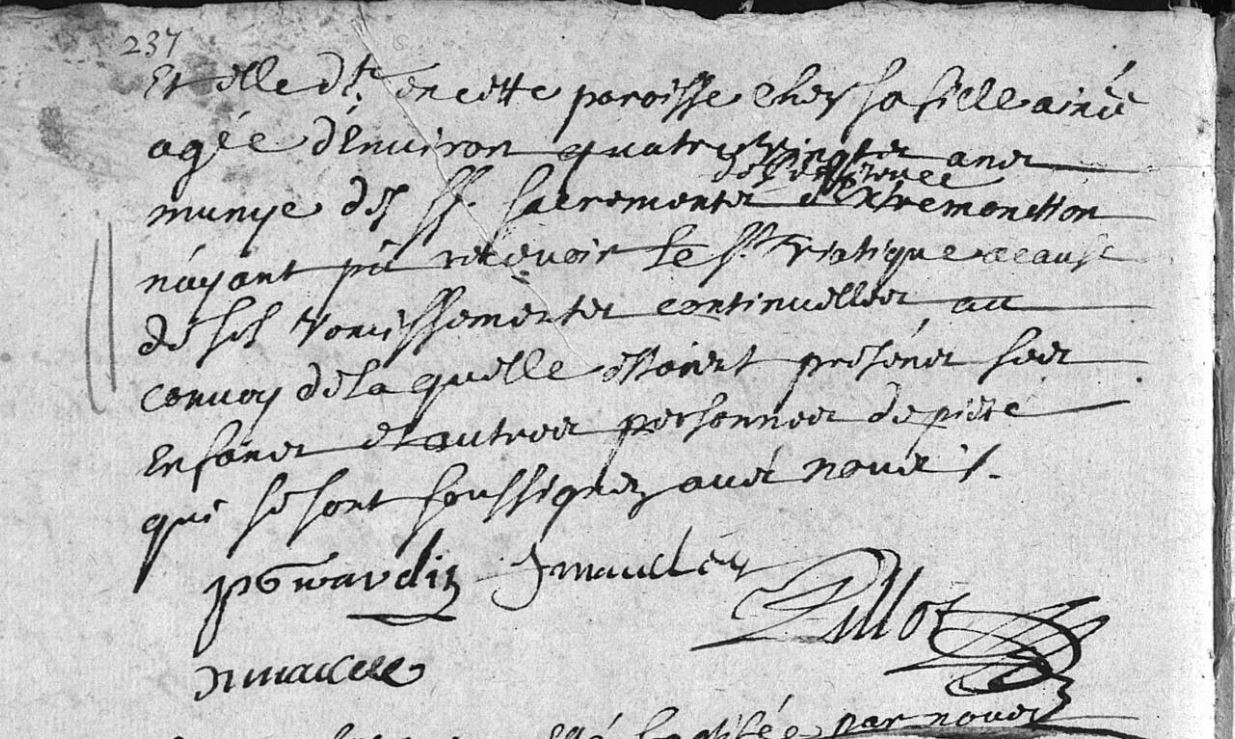 237
Et elle dte. en cette paroisse chez sa fille ainée
agée d'Environ quatre vingtes anes
de penitence
munye des SS. sacrementes d'Extremonction
n'ayant pû recevoir le St. Viatique acause
de ses vomissementes continuelles, au
convoy dela quelle estoient présenes ses
Enfanes et autres personnes de piété
qui se sont soussignez avec noues /.
P Gwardin J mauclere
Pillot
N mauclere
esté baptisée par noues